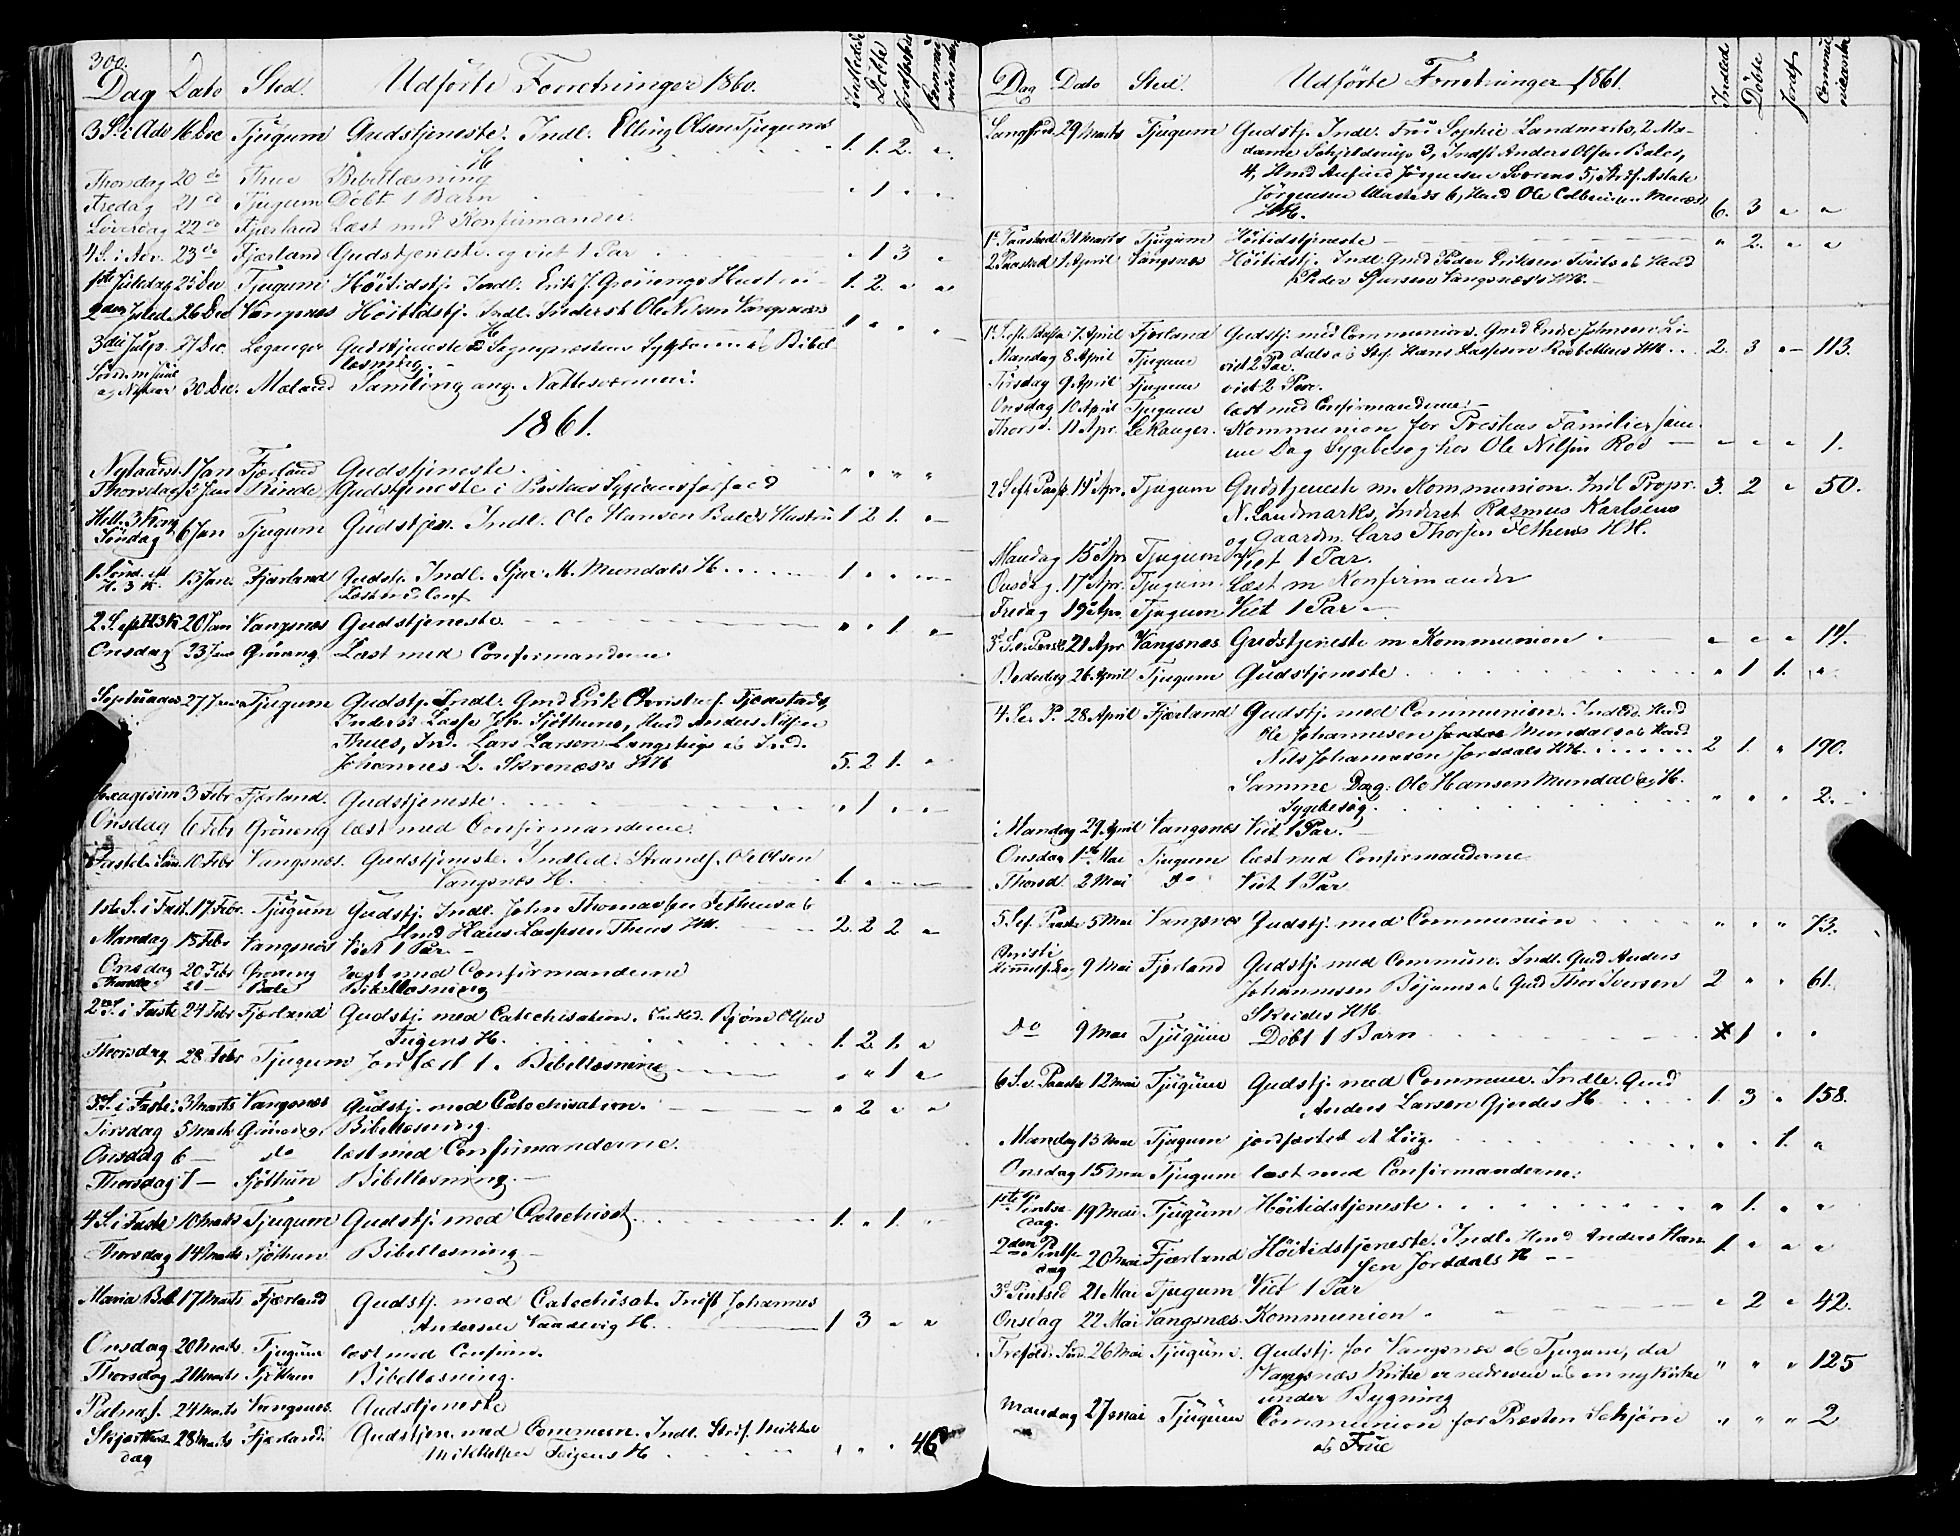 300.
Dag Dato Sted. Udførte Forretninger 1860. Indledede Døbte Jordfæstede Communicanter
3 S. i Adv 16 Dec Tjugum Gudstjeneste. Indl. Elling Olsen Tjugums
H 1. 1. 2. "
Thorsdag 20 do Thue Bibellæsning
Fredag 21 do Tjugum Døbt 1 Barn " 1 " "
Løverdag 22 do Fjærland Læst med Konfirmander.
4 S. i Adv. 23 do Fjærland Gudstjeneste og viet 1 Par " 1 3 "
1ste Juledag 25 Dec Tjugum Høitidstj. Indl. Erik J. Grønengs Hustru 1. 2. " "
2den Juled. 26 Dec Vangsnes Høitidstj. Indl. Inderst Ole Nilsen Vangsnæs
H 1 " " "
3die Juld. 27 Dec. Leganger Gudstjeneste i Sognepræstens Sygdom og Bibel
læsning.
Sønd. m Juul
og Nytaar 30 Dec. Mæland Samling ang. Nattesværmeri.
1861.
Nytaarsd. 1 Jan Fjærland Gudstjeneste. " " " "
Thorsdag 3 Jan Rinde Gudstjeneste i Præstens Sygdomsforfald
Hell. 3 Kong
Søndag 6 Jan Tjugum Gudstjen. Indl. Ole Hansen Bales Hustru 1 2 1. "
1 Sønd. eft
H. 3 K. 13 Jan. Fjærland Gudstj. Indl. Sjur M. Mundals H. 1 " " "
Læst m. Conf
2 S. ef H3K 20 Jan Vangsnes Gudstjeneste. " " 1 "
Onsdag 23 Jan Grøneng Læst med Confirmanderne
Septuages 27 Jan Tjugum Gudstj. Indl. Gmd Erik Christens. Tjønstads
Inderst Lasse Joh. Sjøthuns, Husd Anders Nilsen
Thues, Ind. Lars Larsen Langstrigs og Ind.
Johannes L. Skrenæs's HH 5. 2 1. "
Sexagesim 3 Febr Fjærland. Gudstjeneste. " 1 " "
Onsdag 6 Febr Grøneng læst med Confirmanderne.
Fastel. Søn. 10 Febr Vangsnes. Gudstjeneste. Indled. Strands. Ole Olsen
Vangsnæs H. 1 " " "
1ste S. i Fast. 17. Febr. Tjugum Gudstj. Indl. John Thomassen Fethens og
Hmd Hans Lassesen Thues HH. 2. 2 2 "
Mandag 18 Febr Vangsnæs Viet 1 Par
Onsdag 20 Febr Grøneng læst med Confirmanderne
Thorsdag 21 — Bale Bibellæsning
2den S. i Faste 24 Febr Fjærland Gudstj. med Catechisation. Indled. Bjørn Olsen
Fugens H. 1. 2 1. "
Thorsdag 28 Febr Tjugum Jordfæst 1. Bibellæsning " " 1 "
3de S. i Faste. 3 Marts Vangsnes Gudstj. med Catechisation. " 2 " "
Tirsdag 5 Marts Grøneng. Bibellæsning.
Onsdag 6 — do læst med Confirmanderne.
Thorsdag 7 — Sjøthun Bibellæsning.
4 S. i Faste 10 Marts Tjugum Gudstj. med Catechisat. 1. " 1. "
Thorsdag 14 Marts Sjøthun Bibellæsning
Maria Beb 17 Marts Fjærland Gudstj. med Catechisat. Indst Johannes
Andersen Vaadevig H. 1 3 " "
Onsdag 20 Marts Tjugum læst med Confirm.
Thorsdag 21 Marts Sjøthun Bibellæsning.
Palmes. 24 Marts Vangsnes. Gudstjeneste
Skjærthors
dag 28 Marts Fjærland. Gudstjen. med Commun. Indl. Strds. Mikkel
Mikkelsen Feigens H. " " " 46
Dag Dato Sted. Udførte Forretninger 1861. Indled. Døbte Jordf. Communicanter
Langfred. 29 Marts Tjugum Gudstj. Indl. Frü Sophie Landmarks, 2 Ma-
dame Schjelderup 3, Indst Anders Olsen Bales,
4, Hmd Anfind Jørgensen Sværens 5, Strds. Aslak
Jørgensen Ulvesteds 6, Husd Ole Colbeinsen Menæs
HH. 6. 3 " "
1ste Paasked 31 Marts Tjugum Høitidstjeneste " 2. " "
2 Paaskd 1 April Vangsnes Høitidstj. Indl. Gmd Peder Eriksen Tvites og Husd
Peder Sjursen Vangsnæs's HH.
1 S. eft. Paaske 7. April Fjærland Gudstj. med Communion. Gmd Endre Johnsen Li-
dals og Strf. Hans Lassesen Rødbottens HH. 2. 3 " 113.
Mandag 8 April Tjugum viet 2 Par.
Tirsdag 9 April Tjugum viet 2 Par.
Onsdag 10 April Tjugum læst med Confirmanderne.
Thorsd. 11 Apr. Lekanger. Kommunion for Prestens Familie, sam-
me Dag Sygebesøg hos Ole Nilsen Rød — " " " 1.
2 S. eft. Paask 14 Apr. Tjugum Gudstjeneste m. Kommunion. Indl. Propr. 3. 2 " 50.
N. Landmarks, Inderst Rasmus Karlsens
og Gaardm. Lars Thorsen Fethens HH.
Mandag 15 Apr Tjugum Viet 1 Par.
Onsdag. 17 Apr. Tjugum. Læst m Konfirmander
Fredag 19 Apr. Tjugum Viet 1 Par —
3 S. e. Paaske 21 Apr Vangsnæs Gudstjeneste m Kommunion " " " 14.
Bededag 26 April Tjugum Gudstjeneste " 1 1. "
4 S. e. P. 28 April Fjærland Gudstj. med Communion. Indled. Husd
Ole Johannesen Mundals og Husd
Nils Johannesen Jorddals HH. 2 1. " 190.
Samme Dag. Ole Hansen Mundal og H.
Sygebesøg. " " " 2.
Mandag 29 April Vangsnæs Viet 1 Par.
Onsdag 1ste Mai Tjugum læst med Confirmanderne
Thorsd. 2 Mai Do Viet 1 Par
5 S. ef. Paaske 5 Mai Vangsnæs Gudstj. med Communion " " " 73.
Christi
Himmelf. Dag 9 Mai Fjærland Gudstj. med Commun. Indl. Gmd Anders
Johannesen Bøjums og Gmd Thor Iversen 2 " " 61.
Skeides HH
Do 9 Mai Tjugum Døbt 1 Barn 1 " "
6 S. e. Paaske 12 Mai Tjugum Gudstj. med Commun. Indle. Gmd
Anders Larsen Gjerdes H. 1. 3 " 158.
Mandag 13 Mai Tjugum jordfæstet et Liig. " " 1. "
Onsdag 15 Mai Tjugum læst med Confirmanderne.
1ste Pintse
dag. 19 Mai. Tjugum Høitidstjeneste " 1. " "
2den Pintse
dag 20 Mai Fjærland Høitidstjeneste. Indl. Hmd Anders Han-
sen Jorddals H — 1. " " "
3 Pintsed 21 Mai Tjugum Viet 1 Par
Onsdag 22 Mai Vangsnæs. Kommunion " 2 " 42.
Trefold. Sønd. 26 Mai Tjugum. Gudstj. for Vangsnæs og Tjugum, da
Vangsnæs Kirke er nedreven og en ny Kirke " " " 125
under Bygning
Mandag 27 Mai Tjugum Communion for Præsten Schjørn " " " 2
og Frue